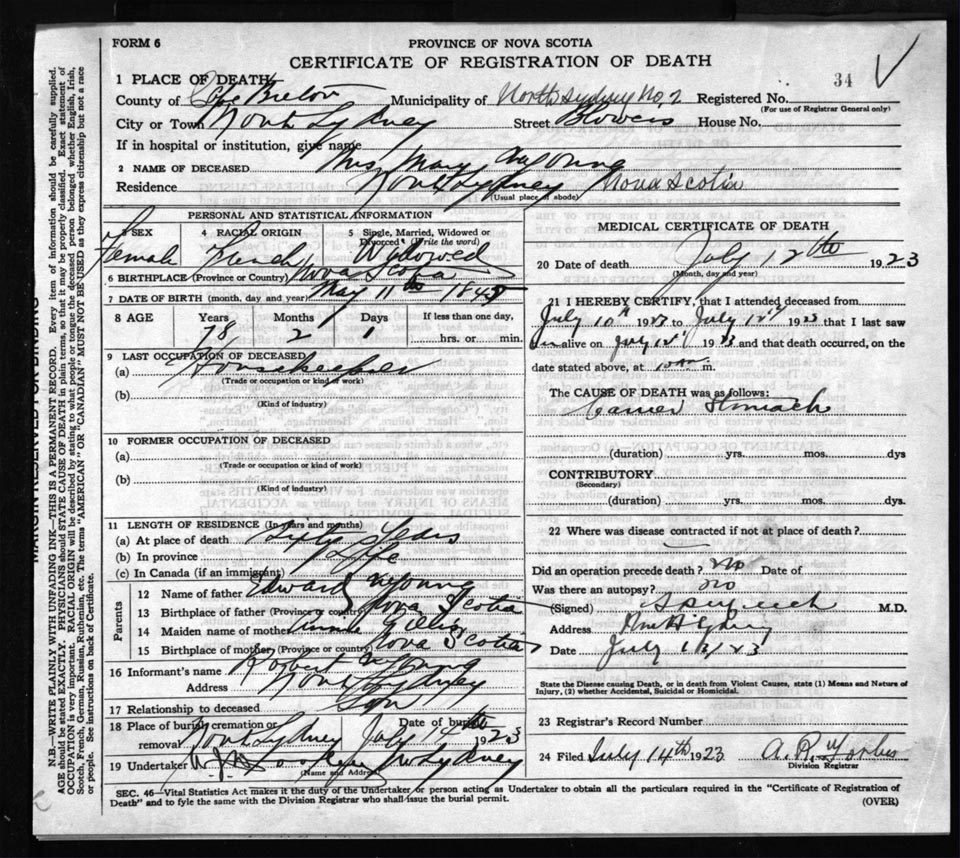 FORM 6
PROVINCE OF NOVA SCOTIA
CERTIFICATE OF REGISTRATION OF DEATH
34
1 PLACE OF DEATH
County of Cape Breton Municipality of North Sydney No. 2 Registered No.
(For use of Registrar General only)
City or Town North Sydney Street Blowers House No.
If in hospital or institution, give name
2 NAME OF DECEASED Mrs Mary
Residence North Sydney Nova Scotia
(Usual place of abode)
PERSONAL AND STATISTICAL INFORMATION
3 SEX 4 RACIAL ORIGIN 5 Single, Married, Widowed or Divorced (Write the word)
Female French Widowed
6 BIRTHPLACE (Province or Country) Nova Scotia
7 DATE OF BIRTH (month, day and year) May 11th 1845
8 AGE Years Months Days If less than one day,
78 2 1 hrs. or min.
9 LAST OCCUPATION OF DECEASED
(a) Housekeeper
(Trade or occupation or kind of work)
(b)
(Kind of industry)
10 FORMER OCCUPATION OF DECEASED
(a)
(Trade or occupation or kind of work)
(b)
(Kind of industry)
11 LENGTH OF RESIDENCE (In years and months)
(a) At place of death Sixty Years
(b) In province Life
(c) In Canada (if an immigrant)
Parents
12 Name of father Edward
13 Birthplace of father (Province or country) Nova Scotia
14 Maiden name of mother Gillis
15 Birthplace of mother (Province or country) Nova Scotia
16 Informant's name Robert
Address North Sydney
17 Relationship to deceased Son
18 Place of burial, cremation or removal North Sydney Date of burial July 14th 1923
19 Undertaker Sydney
(Name and Address)
MEDICAL CERTIFICATE OF DEATH
20 Date of death July 12th 1923
(Month, day and year)
21 I HEREBY CERTIFY, that I attended deceased from
July 10th 1923 to July 12th 1923 that I last saw
alive on July 12th 1923 and that death occurred, on the
date stated above, at m.
The CAUSE OF DEATH was as follows:
Cancer Stomach
(duration) yrs. mos. dys
CONTRIBUTORY
(Secondary)
(duration) yrs. mos. dys.
22 Where was disease contracted if not at place of death?
Did an operation precede death? No Date of
Was there an autopsy? no
(Signed) M.D.
Address
Date July 23
State the Disease causing Death, or in death from Violent Causes, state (1) Means and Nature of
Injury, (2) whether Accidental, Suicidal or Homicidal.
23 Registrar's Record Number
24 Filed July 14th 1923 A. R. Forbes
Division Registrar
SEC. 46—Vital Statistics Act makes it the duty of the Undertaker or person acting as Undertaker to obtain all the particulars required in the "Certificate of Registration of
Death" and to fyle the same with the Division Registrar who shall issue the burial permit.
(OVER)
MARGIN RESERVED FOR BINDING
N.B.—WRITE PLAINLY WITH UNFADING INK—THIS IS A PERMANENT RECORD. Every item of information should be carefully supplied.
AGE should be stated EXACTLY. PHYSICIANS should STATE CAUSE OF DEATH in plain terms, so that it may be properly classified. Exact statement of
OCCUPATION is very important. RACIAL ORIGIN will be described by stating to what people or tongue the deceased person belonged, whether English, Irish,
Scotch, French, German, Russian, Ruthenian, etc. The terms "AMERICAN" OR "CANADIAN" MUST NOT BE USED as they express citizenship but not a race
or people. See instructions on back of Certificate.